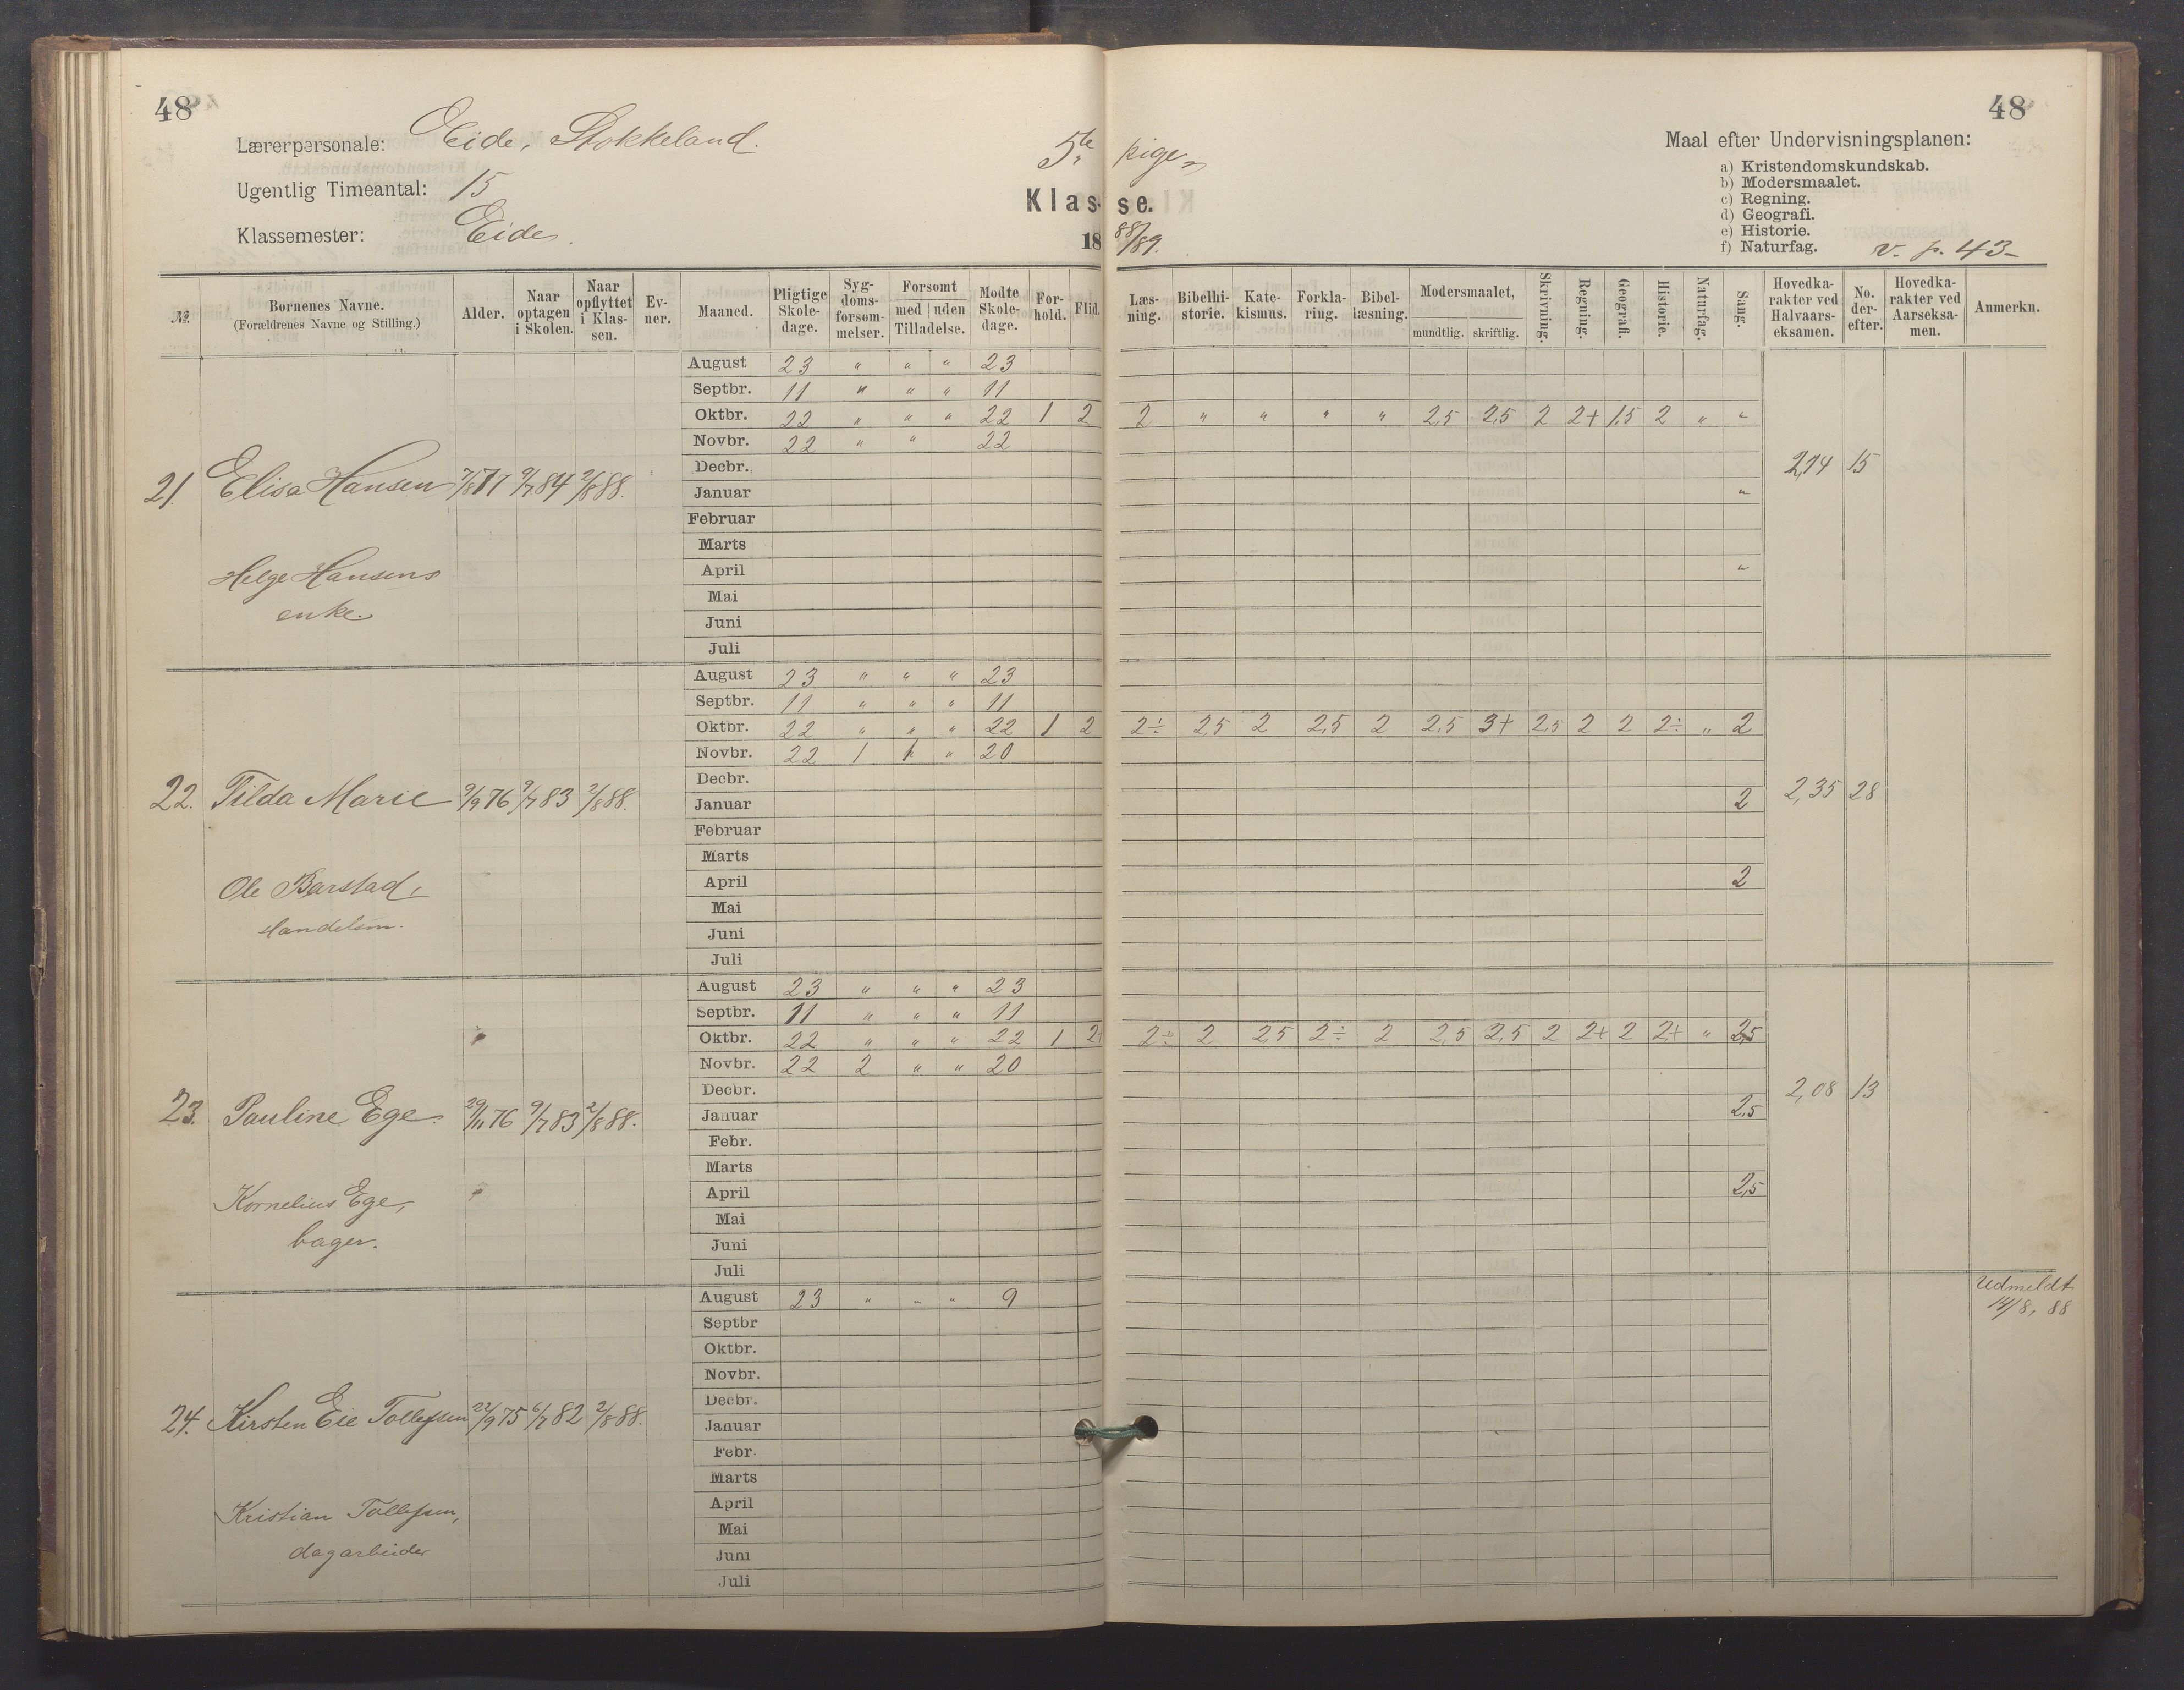 48
48
Lærerpersonale: Eide, Stokkeland.
Ugentlig Timeantal: 15
Klassemester: Eide.
5te pige
Klasse.
18 88/89.
Maal efter Undervisningsplanen:
a) Kristendomskundskab.
b) Modersmaalet.
c) Regning.
d) Geografi.
e) Historie.
f) Naturfag.
v. p. 43
№. Børnenes Navne. (Forældrenes Navne og Stilling.) Alder. Naar optagen i Skolen. Naar opflyttet i Klassen. Evner. Maaned. Pligtige Skoledage. Sygdomsforsømmelser. Forsømt med uden Tilladelse. Mødte Skoledage. Forhold. Flid. Læsning. Bibelhistorie. Katekismus. Forklaring. Bibellæsning. Modersmaalet, mundtlig. skriftlig. Skrivning. Regning. Geografi. Historie. Naturfag. Sang. Hovedkarakter ved Halvaarseksamen. No. derefter. Hovedkarakter ved Aarseksamen. Anmerkn.
August 23 " " " 23
Septbr. 11 " " " 11
Oktbr. 22 " " " 22 1 2 2 " " " " 2,5 2,5 2 2+ 1,5 2 " "
Novbr. 22 " " 22
Decbr. 2,14 15
21. Elisa Hansen 7/8 77 9/7 84 2/8 88.
Januar "
Februar
Marts
Helge Hansens
April "
enke.
Mai
Juni
Juli
August 23 " " " 23
Septbr. 11 " " " 11
Oktbr. 22 " " " 22 1 2 2÷ 2,5 2 2,5 2 2,5 3+ 2,5 2 2 2÷ " 2
Novbr. 22 1 1 " 20
Decbr.
22. Tilda Marie 9/9 76 9/7 83 2/8 88.
Januar 2 2,35 28
Februar
Marts
Ole Barstad,
April 2
Handelsm.
Mai
Juni
Juli
August 23 " " " 23
Septbr. 11 " " " 11
Oktbr. 22 " " " 22 1 2+ 2÷ 2 2,5 2÷ 2 2,5 2,5 2 2+ 2 2+ " 2,5
Novbr. 22 2 " " 20
Decbr. 2,08 13
23. Pauline Ege. 29/11 76 9/7 83 2/8 88.
Januar 2,5
Febr.
Marts
Kornelius Ege,
April 2,5
bager.
Mai
Juni
Juli
August 23 " " " 9 Udmeldt 14/8, 88
Septbr
Oktbr.
Novbr.
Decbr.
24. Kirsten Eie Tollefsen 22/9 75 6/7 82 2/8 88.
Januar
Febr.
Marts
Kristian Tollefsen,
April
Mai
dagarbeider
Juni
Juli